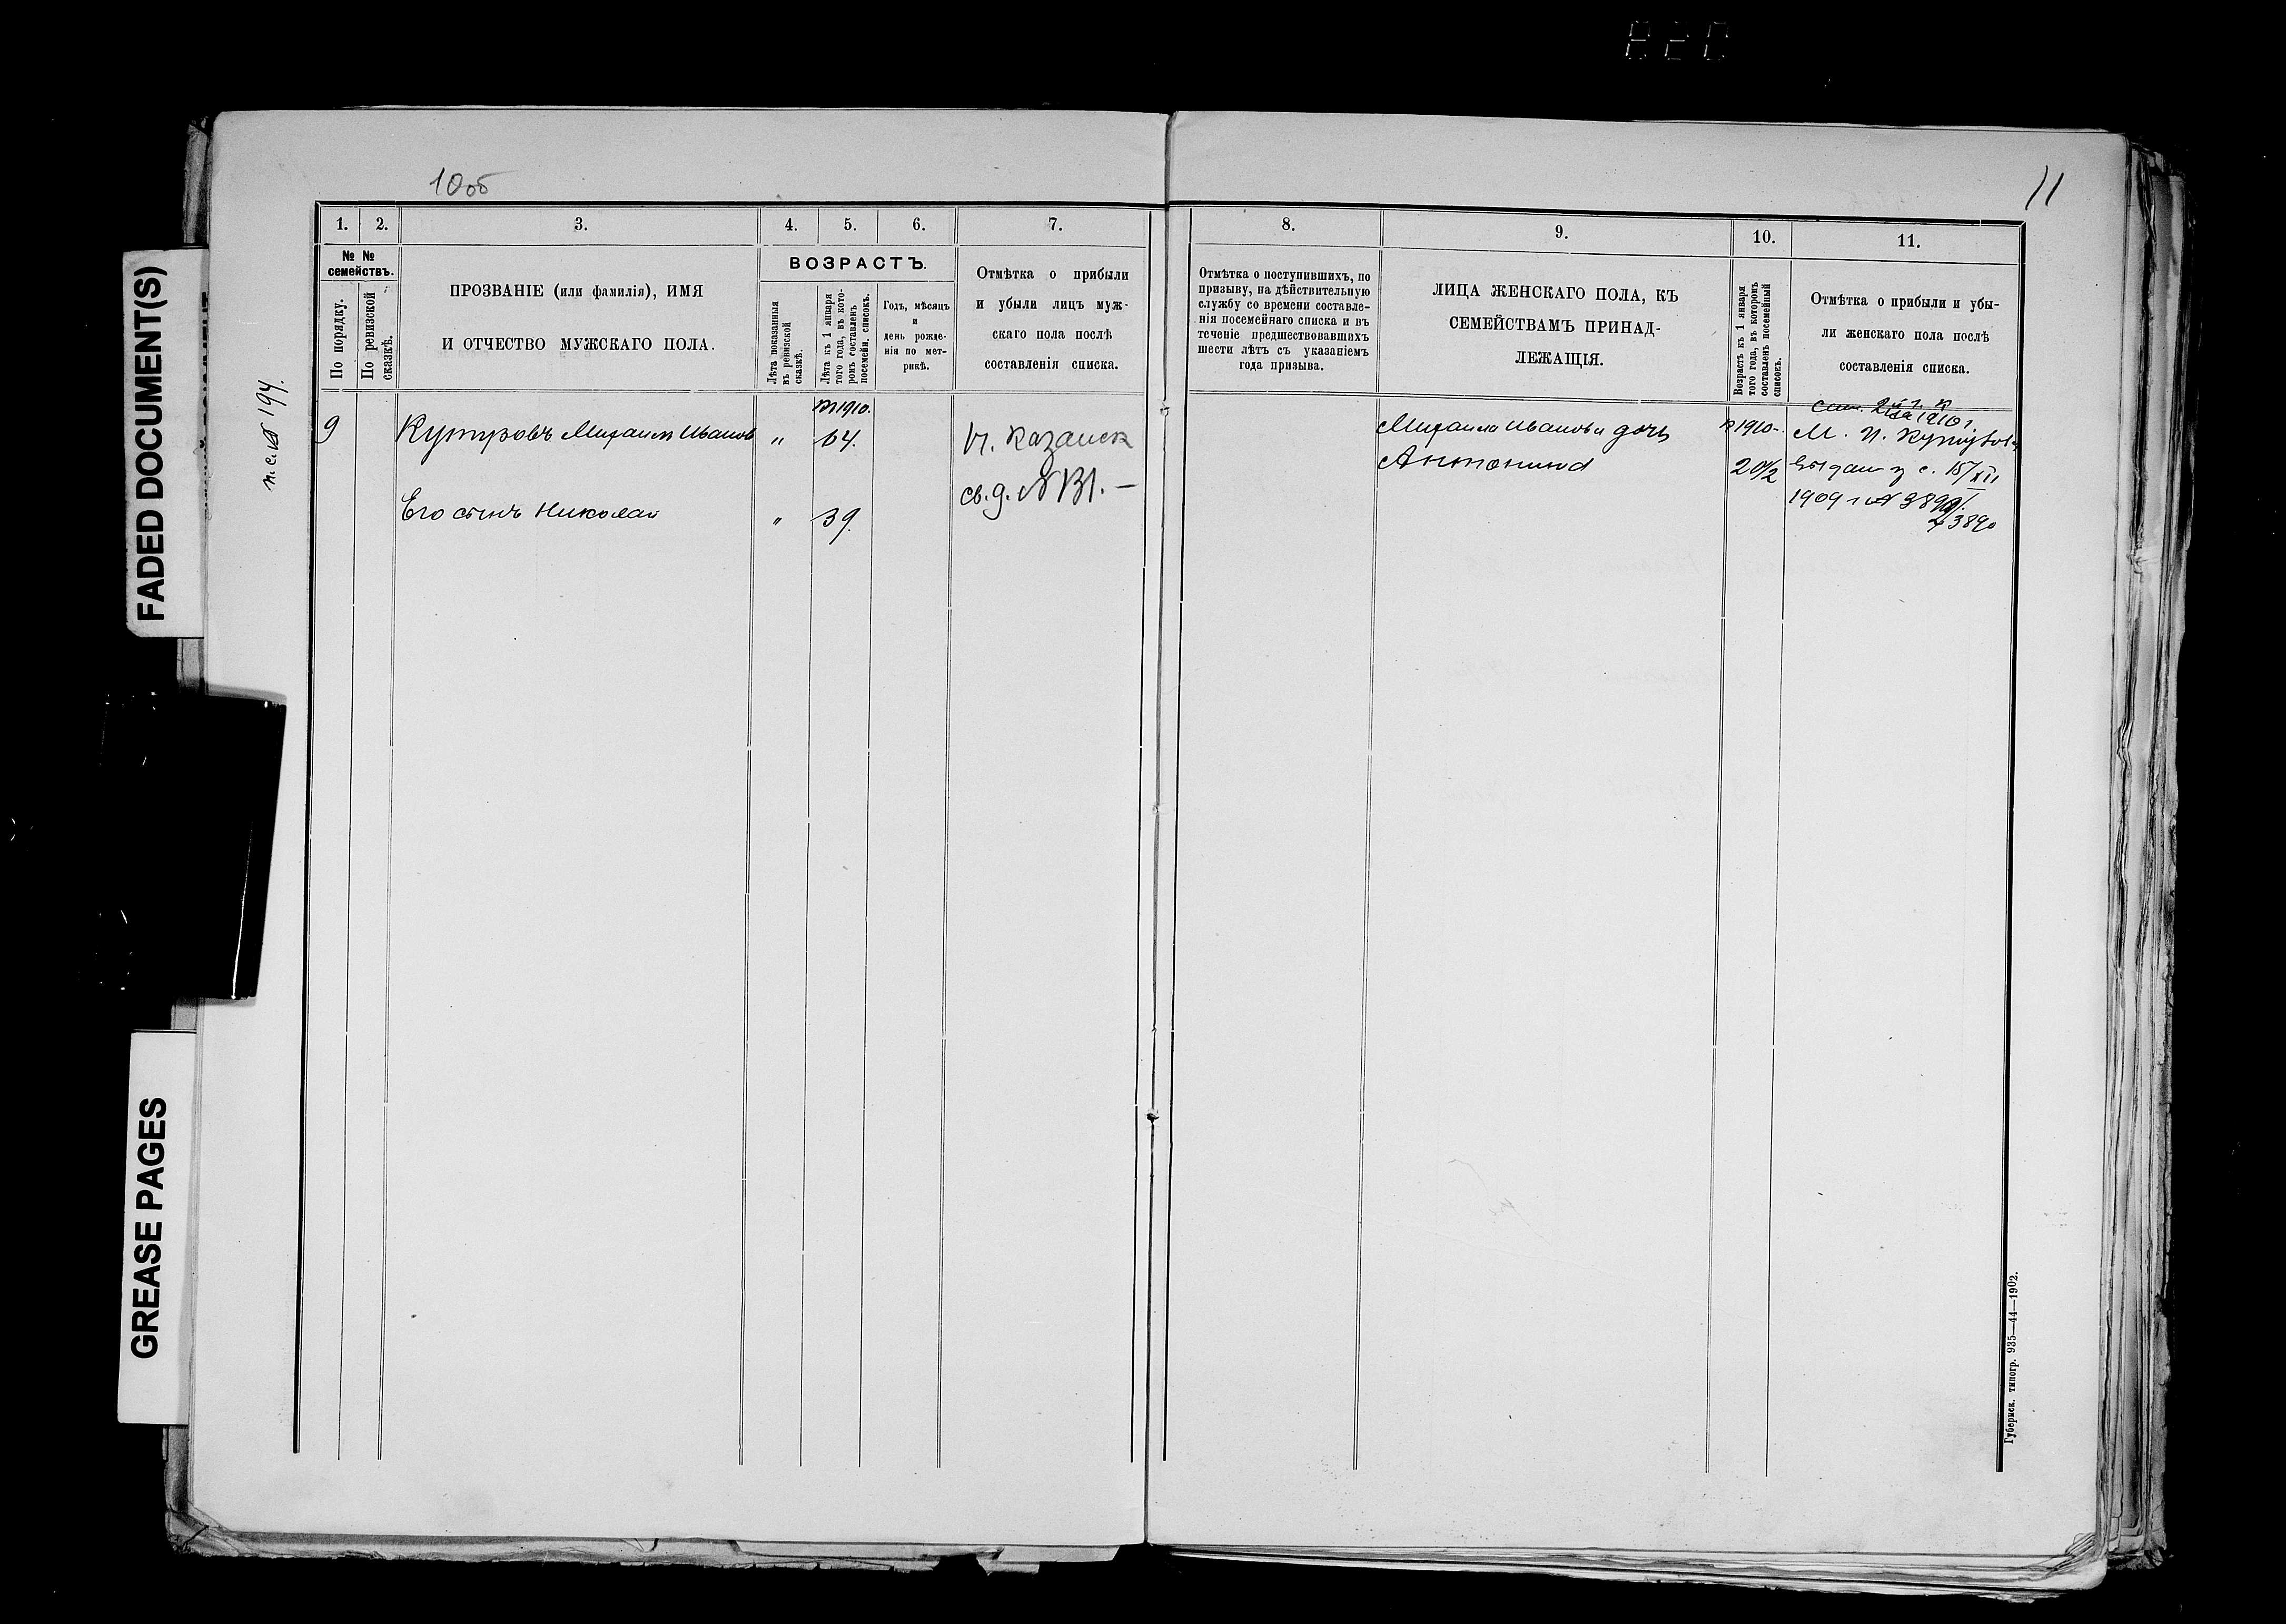 10об
11
FADED DOCUMENT(S)
GREASE PAGES
1.
2.
3.
4.
5.
6.
7.
№ №
семействъ.
По порядку.
По ревизской
сказкѣ.
ПРОЗВАНІЕ (или фамилія), ИМЯ
И ОТЧЕСТВО МУЖСКАГО ПОЛА.
ВОЗРАСТЪ.
Лѣта показанныя
въ ревизской
сказкѣ.
Лѣта къ 1 января
того года, въ кото-
ромъ составленъ
посемейн. списокъ.
Годъ, мѣсяцъ
и
день рожде-
нія по мет-
рикѣ.
Отмѣтка о прибыли
и убыли лицъ муж-
скаго пола послѣ
составленія списка.
194.
1910.
9
Кутуровъ Михаилъ Иванов
"
64.
Казанск
св. д. № 131. —
Его сынъ Николай
"
39.
8.
9.
10.
11.
Отмѣтка о поступившихъ, по
призыву, на дѣйствительную
службу со времени составле-
нія посемейнаго списка и въ
теченіе предшествовавшихъ
шести лѣтъ съ указаніемъ
года призыва.
ЛИЦА ЖЕНСКАГО ПОЛА, КЪ
СЕМЕЙСТВАМЪ ПРИНАД-
ЛЕЖАЩІЯ.
Возрастъ къ 1 января
того года, въ которомъ
составленъ посемейный
списокъ.
Отмѣтка о прибыли и убы-
ли женскаго пола послѣ
составленія списка.
1910 г.
Михаила Иванова дочь
1910
М. И.
Антонина
20½
с. 15/XII
1909 г. №
3890
Губернск. типогр. 935—44—1902.